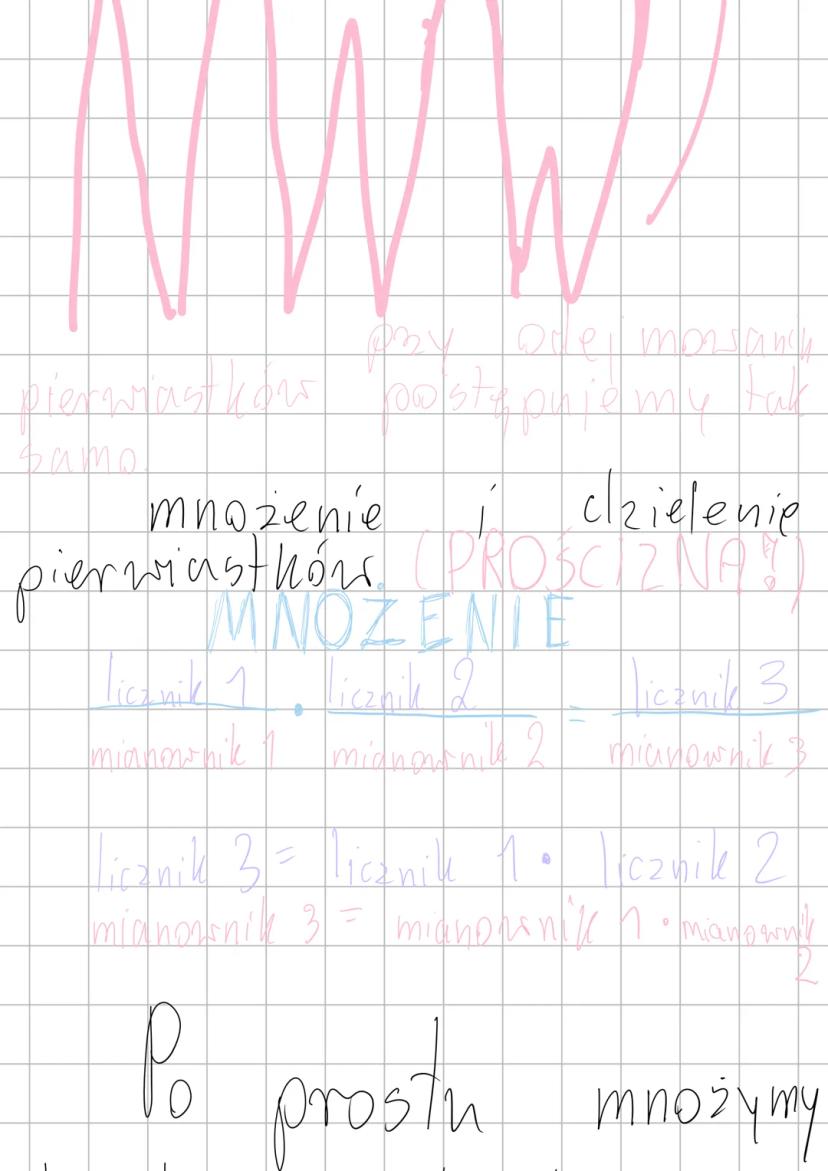 NWW)
przy odejmowaniu
pierwiastków postępujemy tak
samo.
mnożenie i dzielenie
pierwiastków. (PROŚCIZNA!)
MNOŻENIE
licznik 1 • licznik 2 = licznik 3
mianownik 1 mianownik 2 mianownik 3
licznik 3 = licznik 1 • licznik 2
mianownik 3 = mianownik 1 • mianownik
2
Po prostu mnożymy